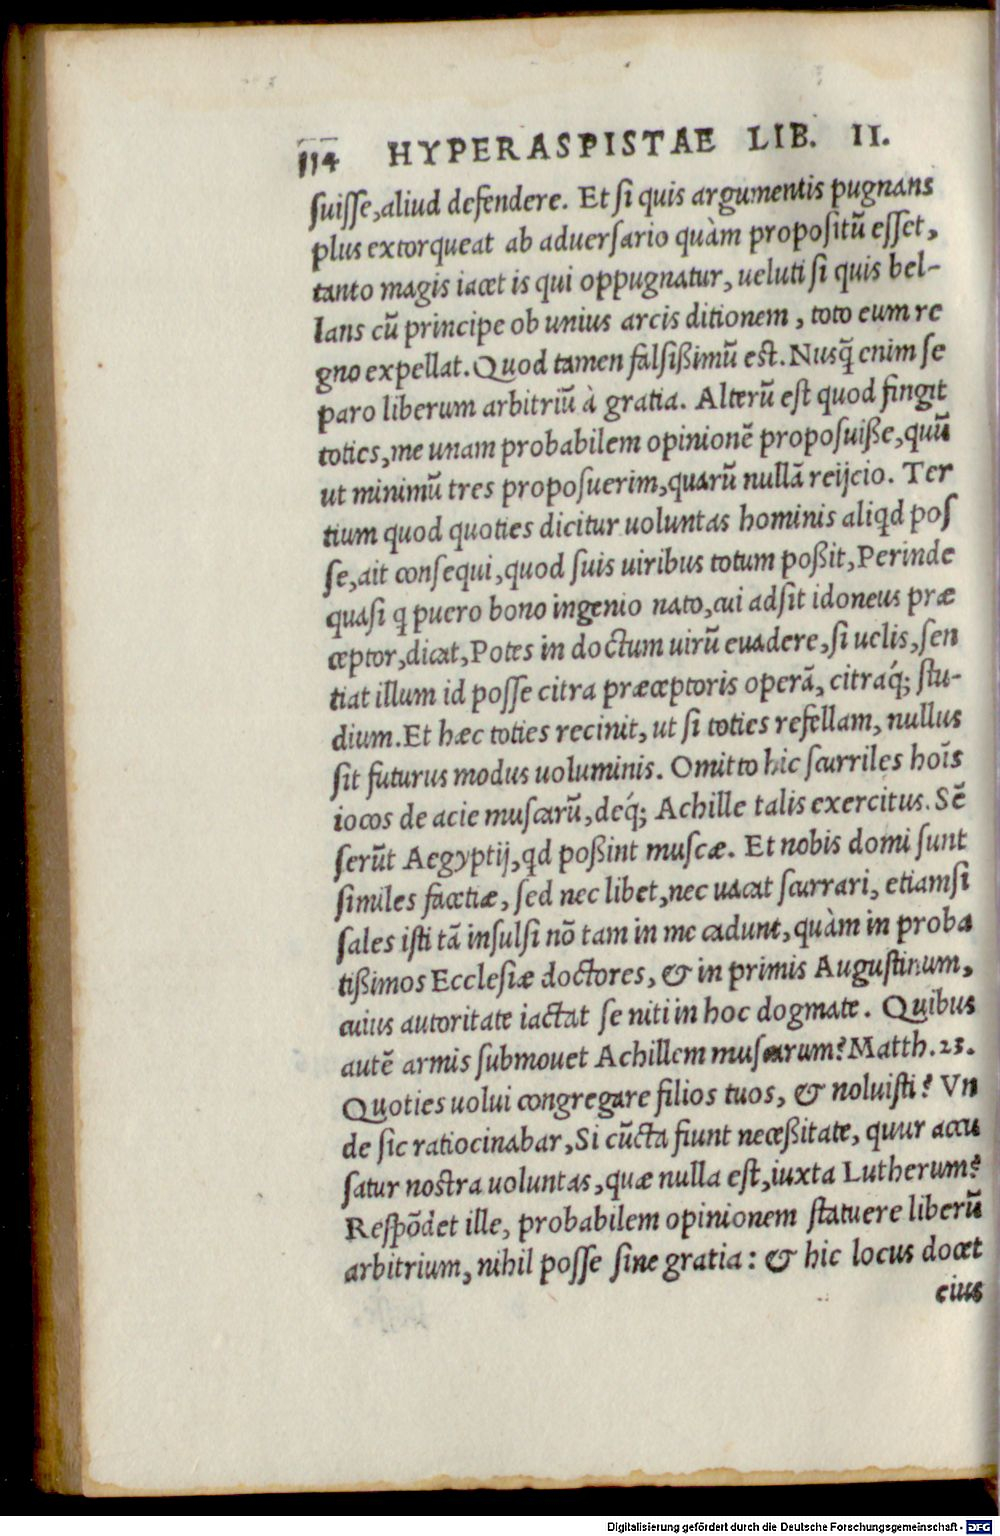 114 HYPERASPISTAE LIB. II.
ſuiſſe,aliud defendere. Et ſi quis argumentis pugnans
plus extorqueat ab aduerſario quàm propoſitũ eſſet,
tanto magis iacet is qui oppugnatur, ueluti ſi quis bel-
lans cũ principe ob unius arcis ditionem, toto eum re
gno expellat. Quod tamen falſißimũ eſt. Nusq̃ enim ſe
paro liberum arbitriũ à gratia. Alterũ eſt quod fingit
toties,me unam probabilem opinionẽ propoſuiße,quũ
ut minimũ tres propoſuerim,quarũ nullã reijcio. Ter
tium quod quoties dicitur uoluntas hominis aliqd poſ
ſe,ait conſequi,quod ſuis uiribus totum poßit, Perinde
quaſi q puero bono ingenio nato,cui adſit idoneus præ
ceptor,dicat, Potes in doctum uirũ euadere,ſi uelis,ſen
tiat illum id poſſe citra præceptoris operã, citraq́; ſtu-
dium. Et hæc toties recinit, ut ſi toties refellam, nullus
ſit futurus modus uoluminis. Omitto hic ſcurriles hoı̃s
iocos de acie muſcarũ, deq́; Achille talis exercitus. Sẽ
ſerũt Aegyptij,qd poßint muſcæ. Et nobis domi ſunt
ſimiles facetiæ, ſed nec libet,nec uacat ſcurrari, etiamſi
ſales iſti tã inſulſi nõ tam in me cadunt, quàm in proba
tißimos Eccleſiæ doctores, & in primis Auguſtinum,
cuius autoritate iactat ſe niti in hoc dogmate. Quibus
autẽ armis ſubmouet Achillem muſcarum? Matth. 23.
Quoties uolui congregare filios tuos, & noluiſti? Vn
de ſic ratiocinabar, Si cũcta fiunt neceßitate, quur accu
ſatur noſtra uoluntas,quæ nulla eſt,iuxta Lutherum?
Reſpõdet ille, probabilem opinionem ſtatuere liberũ
arbitrium, nihil poſſe ſine gratia: & hic locus docet
eius
Digitalisierung gefördert durch die Deutsche Forschungsgemeinschaft - DFG